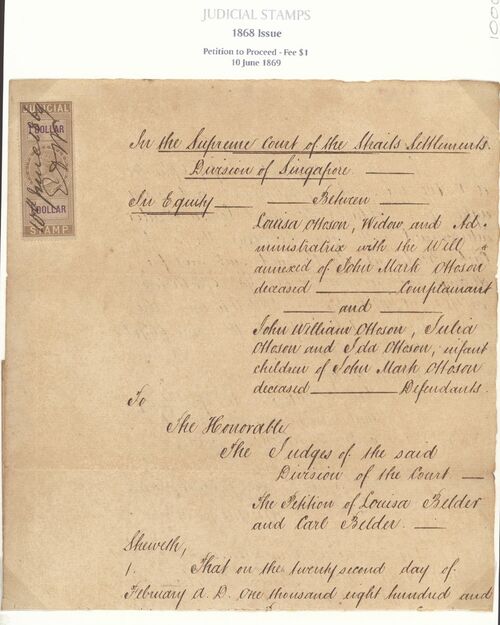 JUDICIAL STAMPS
1868 Issue
Petition to Proceed - Fee $1
10 June 1869
JUDICIAL
1 DOLLAR
1 DOLLAR
STAMP
In the Supreme Court of the Straits Settlements.
Division of Singapore
In Equity
Between
Louisa Ottoson, Widow and Ad-
ministratrix with the Will
annexed of John Mark Ottoson
deceased Complainant
and
John William Ottoson, Julia
Ottoson and Ida Ottoson, infant
children of John Mark Ottoson
deceased Defendants.
To
The Honorable
The Judges of the said
Division of the Court
The Petition of Louisa Belder
and Carl Belder.
Sheweth,
1. That on the twenty second day of
February A. D. One thousand eight hundred and